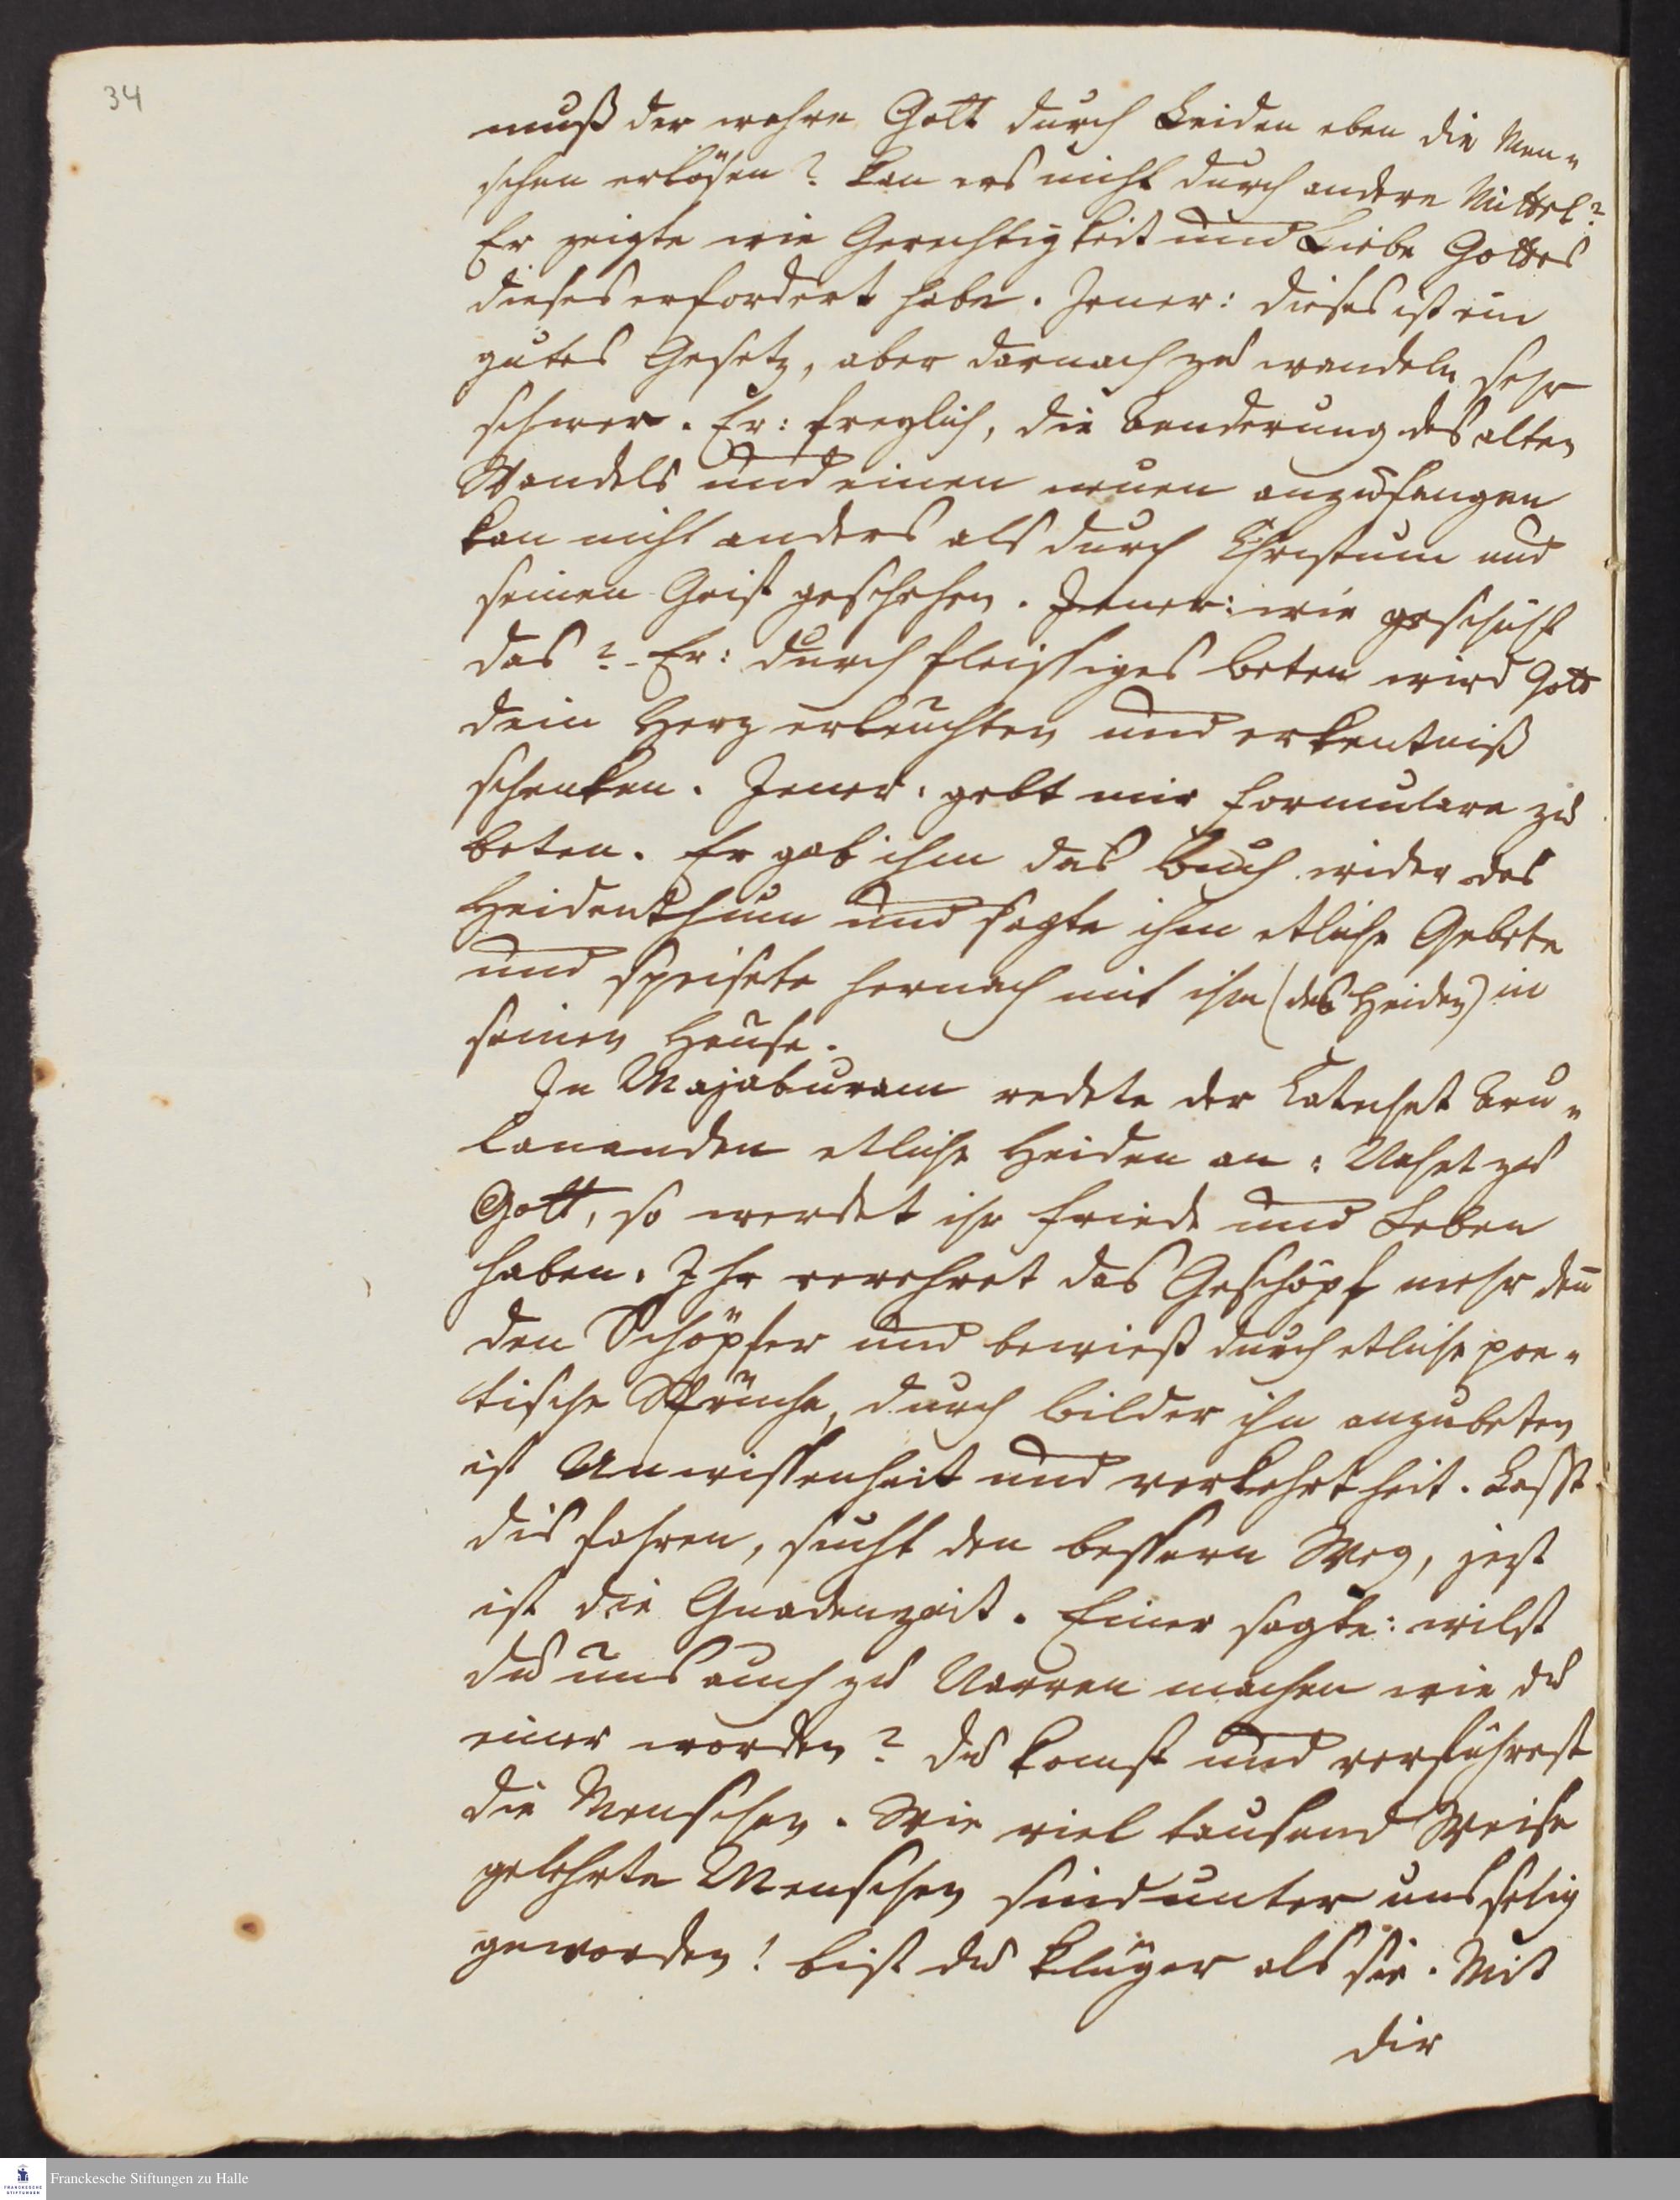 34
muß der wahre Gott durch Leiden eben die Men-
schen erlösen? kan ers nicht durch andere Mittel?
Er zeigte wie Gerechtigkeit und Liebe Gottes
dieses erfordert habe. Jener: dieses ist ein
gutes Gesetz, aber darnach zu wandeln sehr
schwer. Er: freylich, die Aenderung des alten
Wandels und einen neuen anzufangen
kan nicht anders als durch Christum und
seinen Geist geschehen. Jener: wie geschicht
das? Er: durch fleissiges beten wird Gott
dein Herz erleuchten und erkentniß
schenken. Jener: gebt mir formulare zu
beten. Er gab ihm das Buch wider das
Heidenthum und sagte ihm etliche Gebete
und speisete hernach mit ihm (des Heiden) in
seinen Hause.
In Majaburam redete der Catechet Aru-
lananden etliche Heiden an: Nahet zu
Gott, so werdet ihr friede und Leben
haben. Ihr verehret das Geschöpf mehr den
den Schöpfer und bewieß durch etliche poe-
tische Sprüche, durch bilder ihn anzubeten
ist Unwissenheit und verkehrtheit. Lasst
dis fahren, sucht den bessern Weg, jezt
ist die Gnadenzeit. Einer sagte: wilst
du uns auch zu Narren machen wie du
einer worden? du komst und verführest
die Menschen. Wie viel tausend Weise
gelehrte Menschen sind unter uns selig
geworden! bist du klüger als sie. Mit
dir
Franckesche Stiftungen zu Halle
FRANCKESCHE
STIFTUNGEN